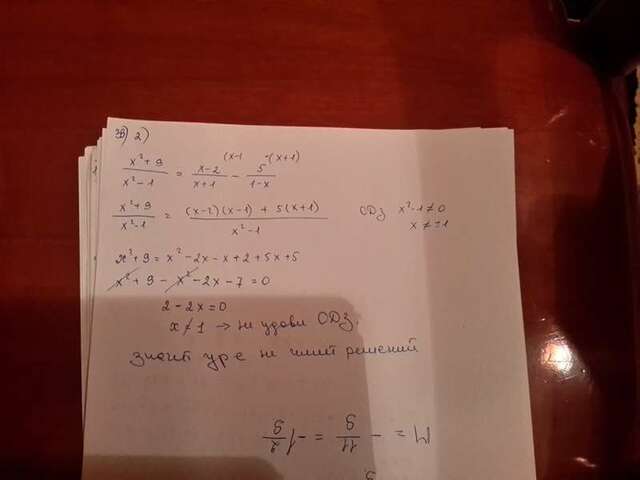 3В) 2)
(x-1 -(x+1)
x²+9 / x²-1 = x-2 / x+1 - 5 / 1-x
x²+9 / x²-1 = (x-2)(x-1) + 5(x+1) / x²-1 ОДЗ x²-1≠0
x ≠ ±1
x²+9 = x²-2x-x+2+5x+5
x²+9-x²-2x-7=0
2-2x=0
x≠1 → не удовл ОДЗ.
значит ур-е не имеет решений
M = - 11/9 = -1 2/9